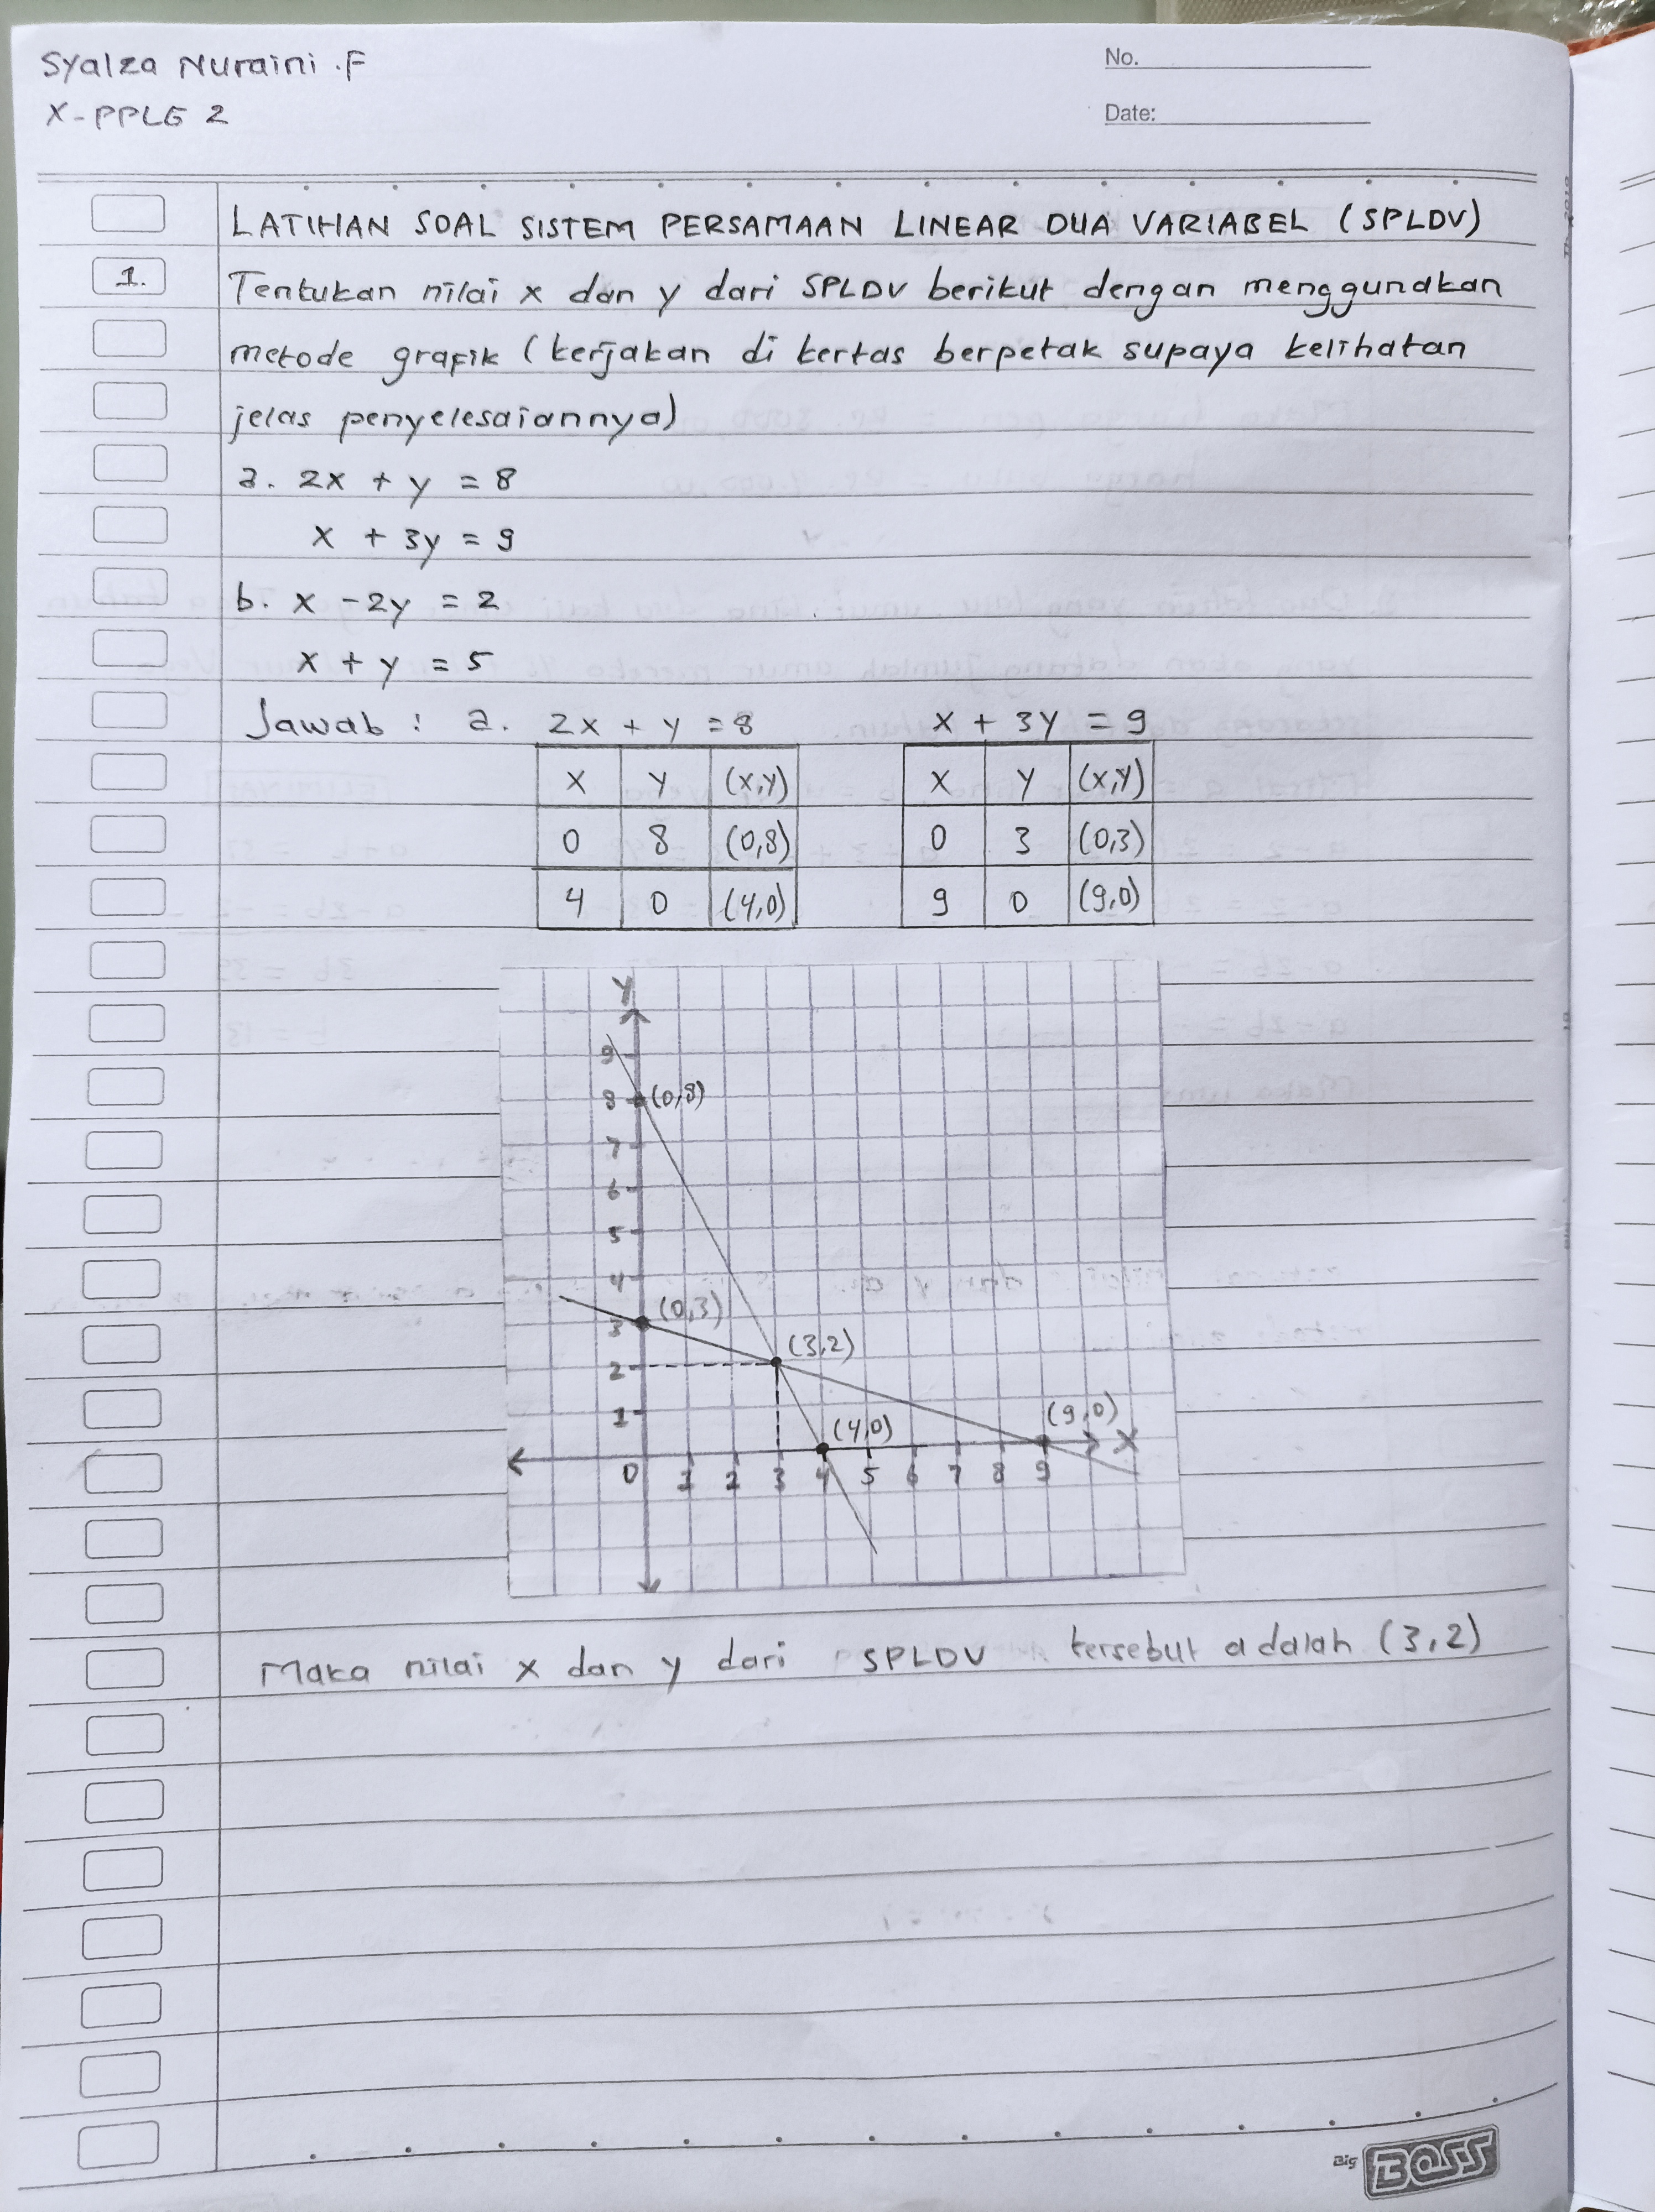 Syalza Nuraini .F
X - PPLG 2
No.
Date:
LATIHAN SOAL SISTEM PERSAMAAN LINEAR DUA VARIABEL (SPLDV)
1. Tentukan nilai x dan y dari SPLDV berikut dengan menggunakan
metode grafik (kerjakan di kertas berpetak supaya kelihatan
jelas penyelesaiannya)
a. 2x + y = 8
x + 3y = 9
b. x - 2y = 2
x + y = 5
Jawab : a. 2x + y = 8 x + 3y = 9
x y (x,y) x y (x,y)
0 8 (0,8) 0 3 (0,3)
4 0 (4,0) 9 0 (9,0)
Y
9
8 (0,8)
7
6
5
4
3 (0,3)
2 (3,2)
1 (4,0) (9,0) X
0 1 2 3 4 5 6 7 8 9
Maka nilai x dan y dari SPLDV tersebut adalah (3,2)
Big BOSS